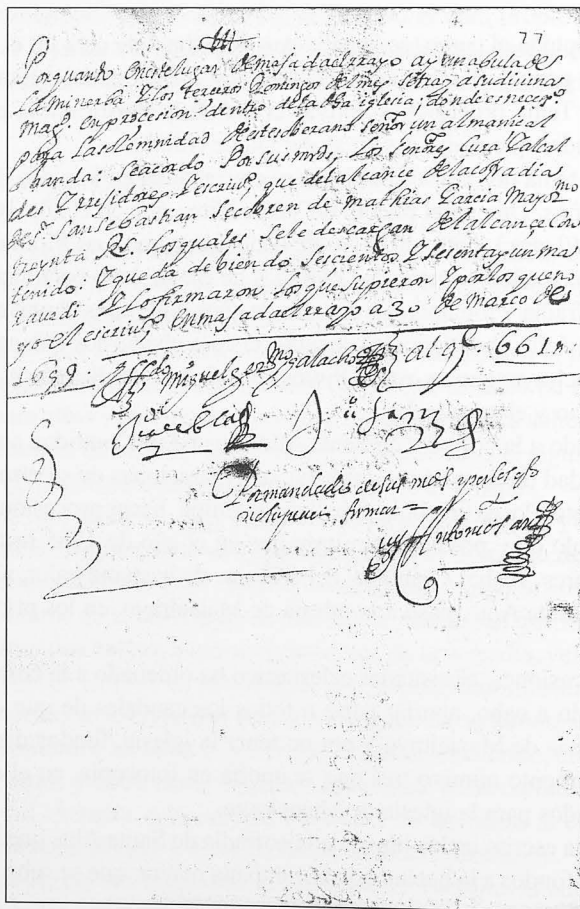 77
Porquanto en este lugar de masadaelrrayo ay una bula de
La minerba y los terceros Domingos del mes se tray a su divina
Magd. en procesion dentro de la dha iglesia; donde es necesº.
para La solemnidad de este soberano señor un almaical
banda: Se acordo Por sus mrds. Los señores Cura y alcal
des y rresidores y escrivº que del alcance de la cofradia
de Sr. San Sebastian se cobren de Mathias Garcia Mayormo
treynta Rs. Los quales se le descargan del alcançe Con
tenido: y queda debiendo sescientos y sesenta y un ma
ravedi y Lo firmaron los que supieron y por los que no
yo el escrivº en masadaelrrayo a 30 de Março de
1699 Miguel galacho 661 m
Juº Juº
Por mandado de sus mds y por los q
no supieron firmar =
Antº